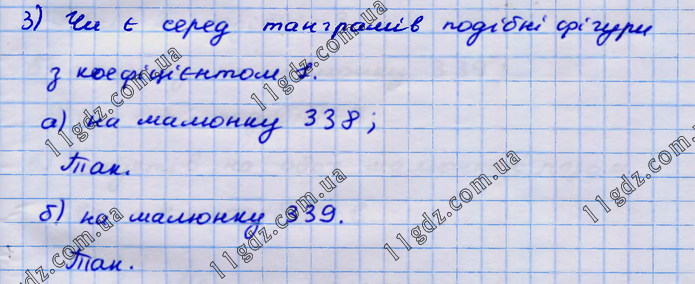 3) Чи є серед танграмів подібні фігури
з коефіцієнтом 1.
а) на малюнку 338;
Так.
б) на малюнку 339.
Так.
11gdz.com.ua
11gdz.com.ua
11gdz.com.ua
11gdz.com.ua
11gdz.com.ua
11gdz.com.ua
gdz.com.ua